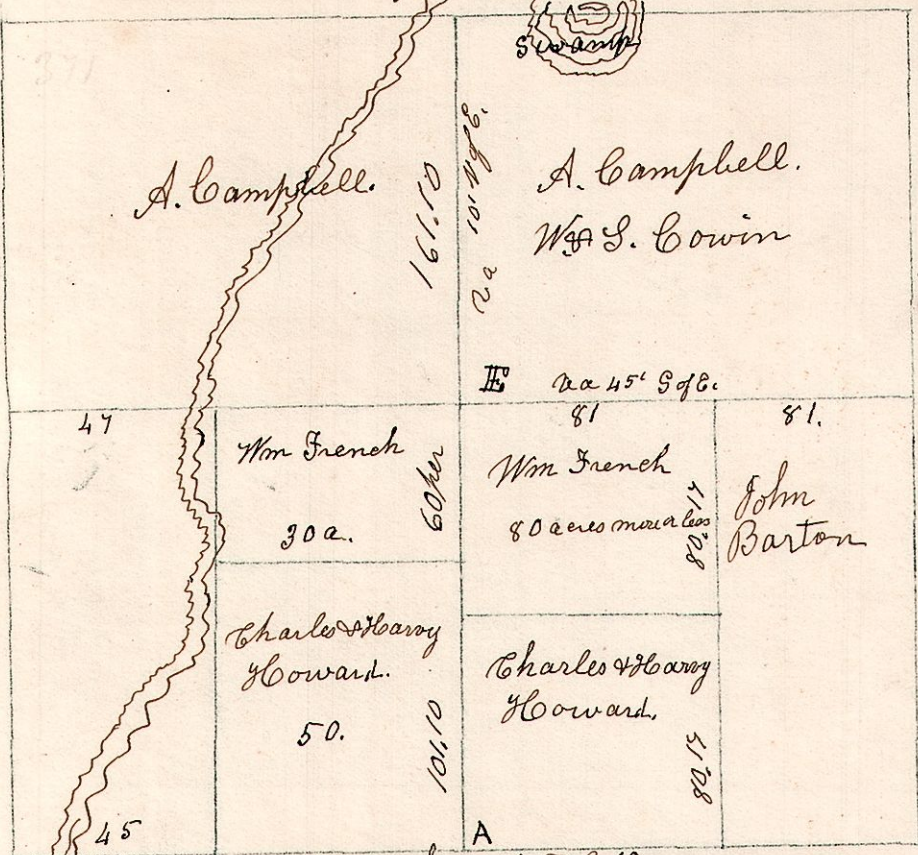 Swamp
371
A. Campbell.
161.10
Va 101' N of E.
A. Campbell.
Wm S. Cowin
E Va 45' S of E.
47
81
81.
Wm French
30a.
60 per
Wm French
80 acres more or less
80.17
John
Barton
Charles & Harvy
Howard.
50.
101.10
Charles & Harvy
Howard.
80.15
45
A